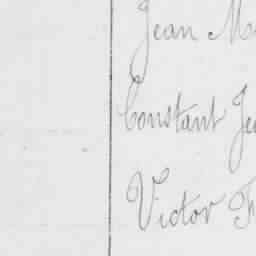 Jean M
Constant Je
Victor F